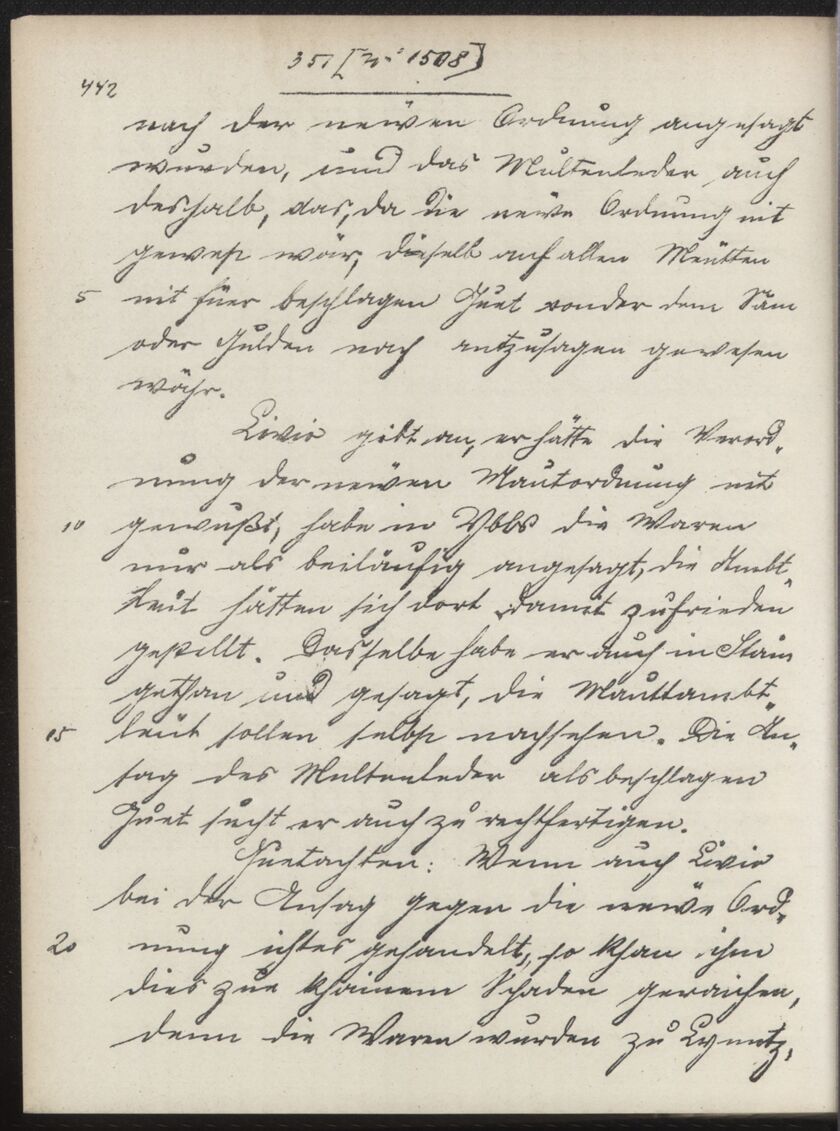 351 [N: 1508]
442
nach der neüen Ordnung angesagt
wurden, und das Multenleder auch
deshalb, das, da die neüe Ordnung nit
gewest wär, dieselb auf allen Meütten
5 nit füer beschlagen Guet sonder dem Sam
oder Gulden nach antzusagen gewesen
währ.
Livio gibt an, er hätte die Verord„
nung der neüen Mautordnung nit
10 gewußt, habe in Ybbs die Waren
nur als beiläufig angesagt, die Ambt„
leüt hätten sich dort damit zufrieden
gestellt. Dasselbe habe er auch in Stain
gethan und gesagt, die Mauttambt„
15 leüt sollen selbst nachsehen. Die An„
sag des Multenleder als beschlagen
Guet sucht er auch zu rechtfertigen.
Guetachten: Wenn auch Livio
bei der Ansag gegen die neüe Ord„
20 nung ichtes gehandelt, so khan ihm
dies zue khainem Schaden geraichen,
denn die Waren wurden zu Lynntz,